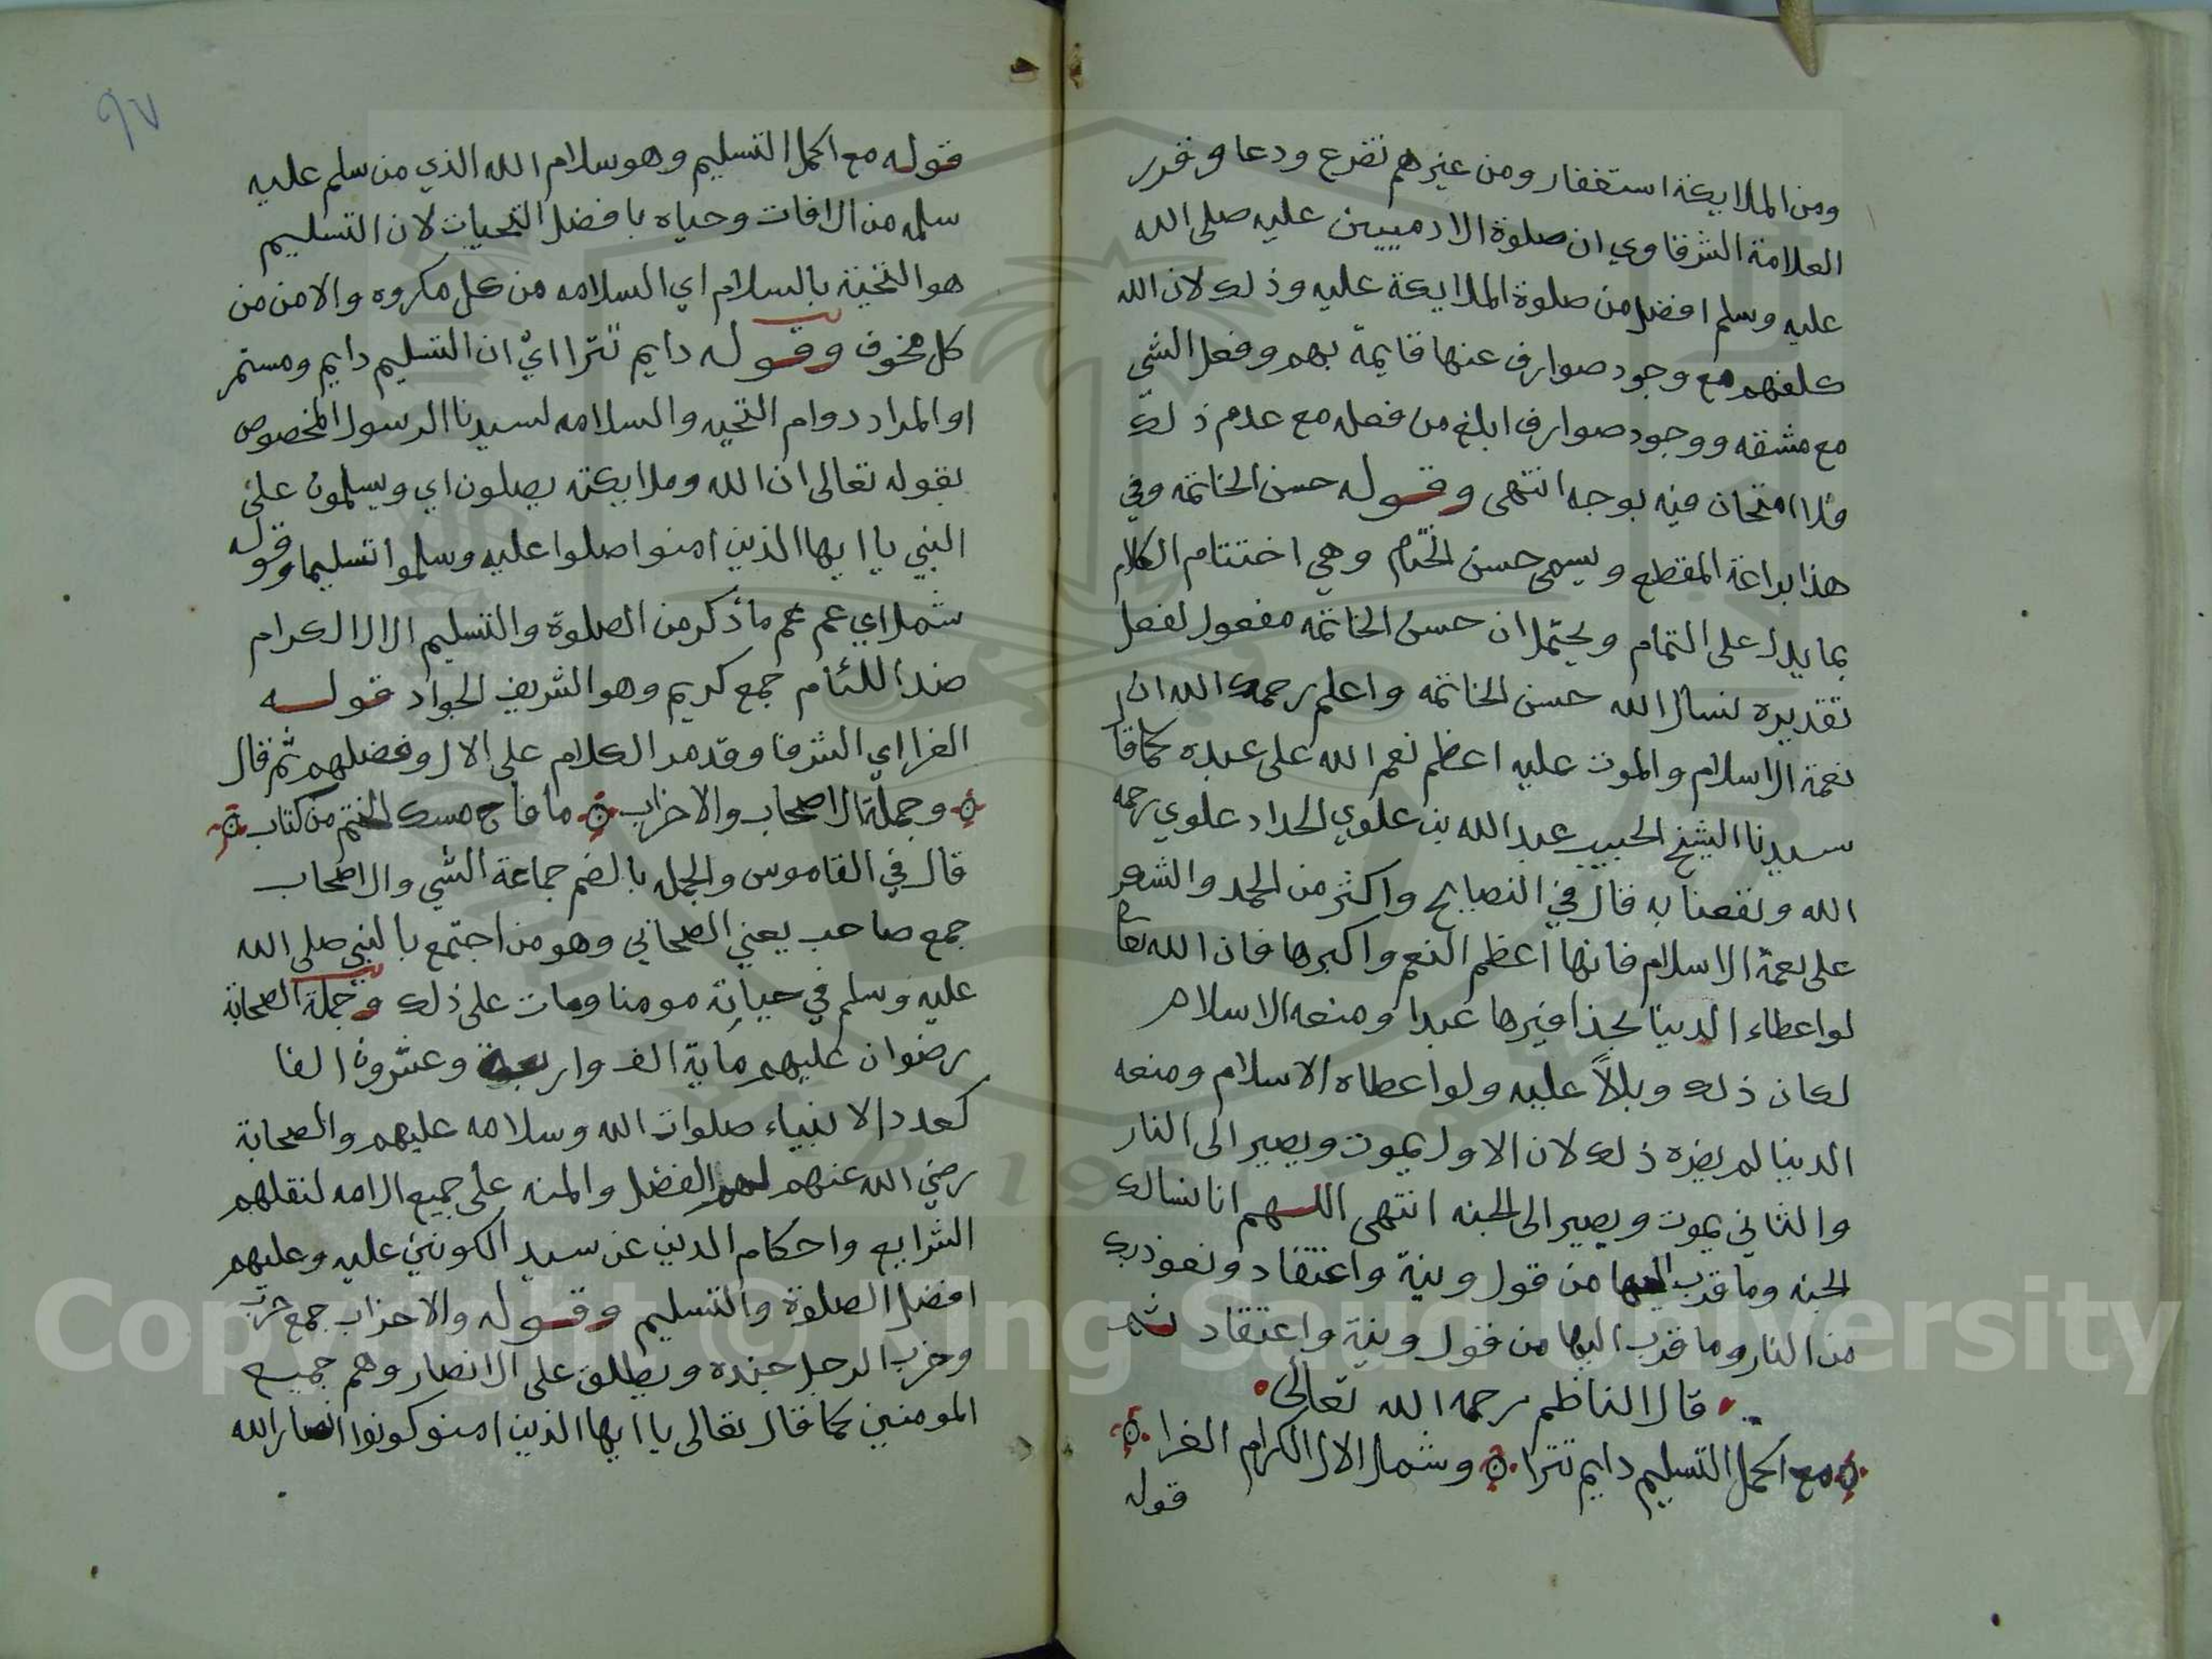 ومن الملايكة استغفار ومن غيرهم تضرع ودعا وقرر
العلامة الشرقاوي ان صلوة الادميين عليه صلى الله
عليه وسلم افضل من صلوة الملايكة عليه وذلك لان الله
كلفهم مع وجود صوارف عنها قايمة بهم وفعل الشي
مع مشقه ووجود صوارف ابلغ من فعله مع عدم ذلك
فلا امتحان فيه بوجه انتهى وقوله حسن الخاتمه وفي
هذا براعة المقطع ويسمى حسن الختام وهي اختتام الكلام
بما يدل على التمام ويحتمل ان حسن الخاتمه مفعول لفعل
تقديره نسال الله حسن الخاتمه واعلم رحمك الله ان
نعمة الاسلام والموت عليه اعظم نعم الله على عبده كما قا
سيدنا الشيخ الحبيب عبد الله بن علوي الحداد علوي رحمه
الله ونفعنا به قال في النصايح واكثر من الحمد والشعر
على نعمة الاسلام فانها اعظم النعم واكبرها فان الله تعا
لو اعطاء الدينا بحذافيرها عبدا ومنعه الاسلام
لكان ذلك وبلاً عليه ولو اعطاه الاسلام ومنعه
الدينا لم يضره ذلك لان الاول يموت ويصير الى النار
والثاني يموت ويصير الى الجنه انتهى اللهم انا نسالك
الجنه وما قرب اليها من قول ونية واعتقاد ونعوذ بك
من النار وما قرب اليها من قول ونية واعتقاد ثم
قال الناظم رحمه الله تعالى
مع اكمل التسليم دايم تترا وشمل الال الكرام الغرا
قوله
٩٧
قوله مع اكمل التسليم وهو سلام الله الذي من سلم عليه
سلمه من الافات وحياه بافضل التحيات لان التسليم
هو التحية بالسلام اي السلامه من كل مكروه والامن من
كل مخوف وقوله دايم تترا اي ان التسليم دايم ومستمر
او المراد دوام التحيه والسلامه لسيدنا الرسول المخصوص
بقوله تعالى ان الله وملايكته يصلون اي ويسلمون على
النبي يا ايها الذين امنوا صلوا عليه وسلموا تسليما وقوله
شمل اي عم عم ما ذكر من الصلوة والتسليم الال الكرام
ضد اللئام جمع كريم وهو الشريف الجواد قوله
الغرا اي الشرفا وقد مر الكلام على الال وفضلهم ثم قال
وجملة الاصحاب والاحزاب ما فاح مسك الختم من كتاب
قال في القاموس والجمله بالضم جماعة الشي والاصحاب
جمع صاحب يعني الصحابي وهو من اجتمع بالنبي صلى الله
عليه وسلم في حياته مومنا ومات على ذلك وجملة الصحابة
رضوان عليهم ماية الف واربعة وعشرون الفا
كعدد الانبياء صلوات الله وسلامه عليهم والصحابة
رضي الله عنهم لهم الفضل والمنه على جميع الامه لنقلهم
الشرايع واحكام الدين عن سيد الكونين عليه وعليهم
افضل الصلوة والتسليم وقوله والاحزاب جمع حزب
وحزب الرجل جنده ويطلق على الانصار وهم جميع
المومنين كما قال تعالى يا ايها الذين امنو كونوا انصار الله
Copyright © King Saud University